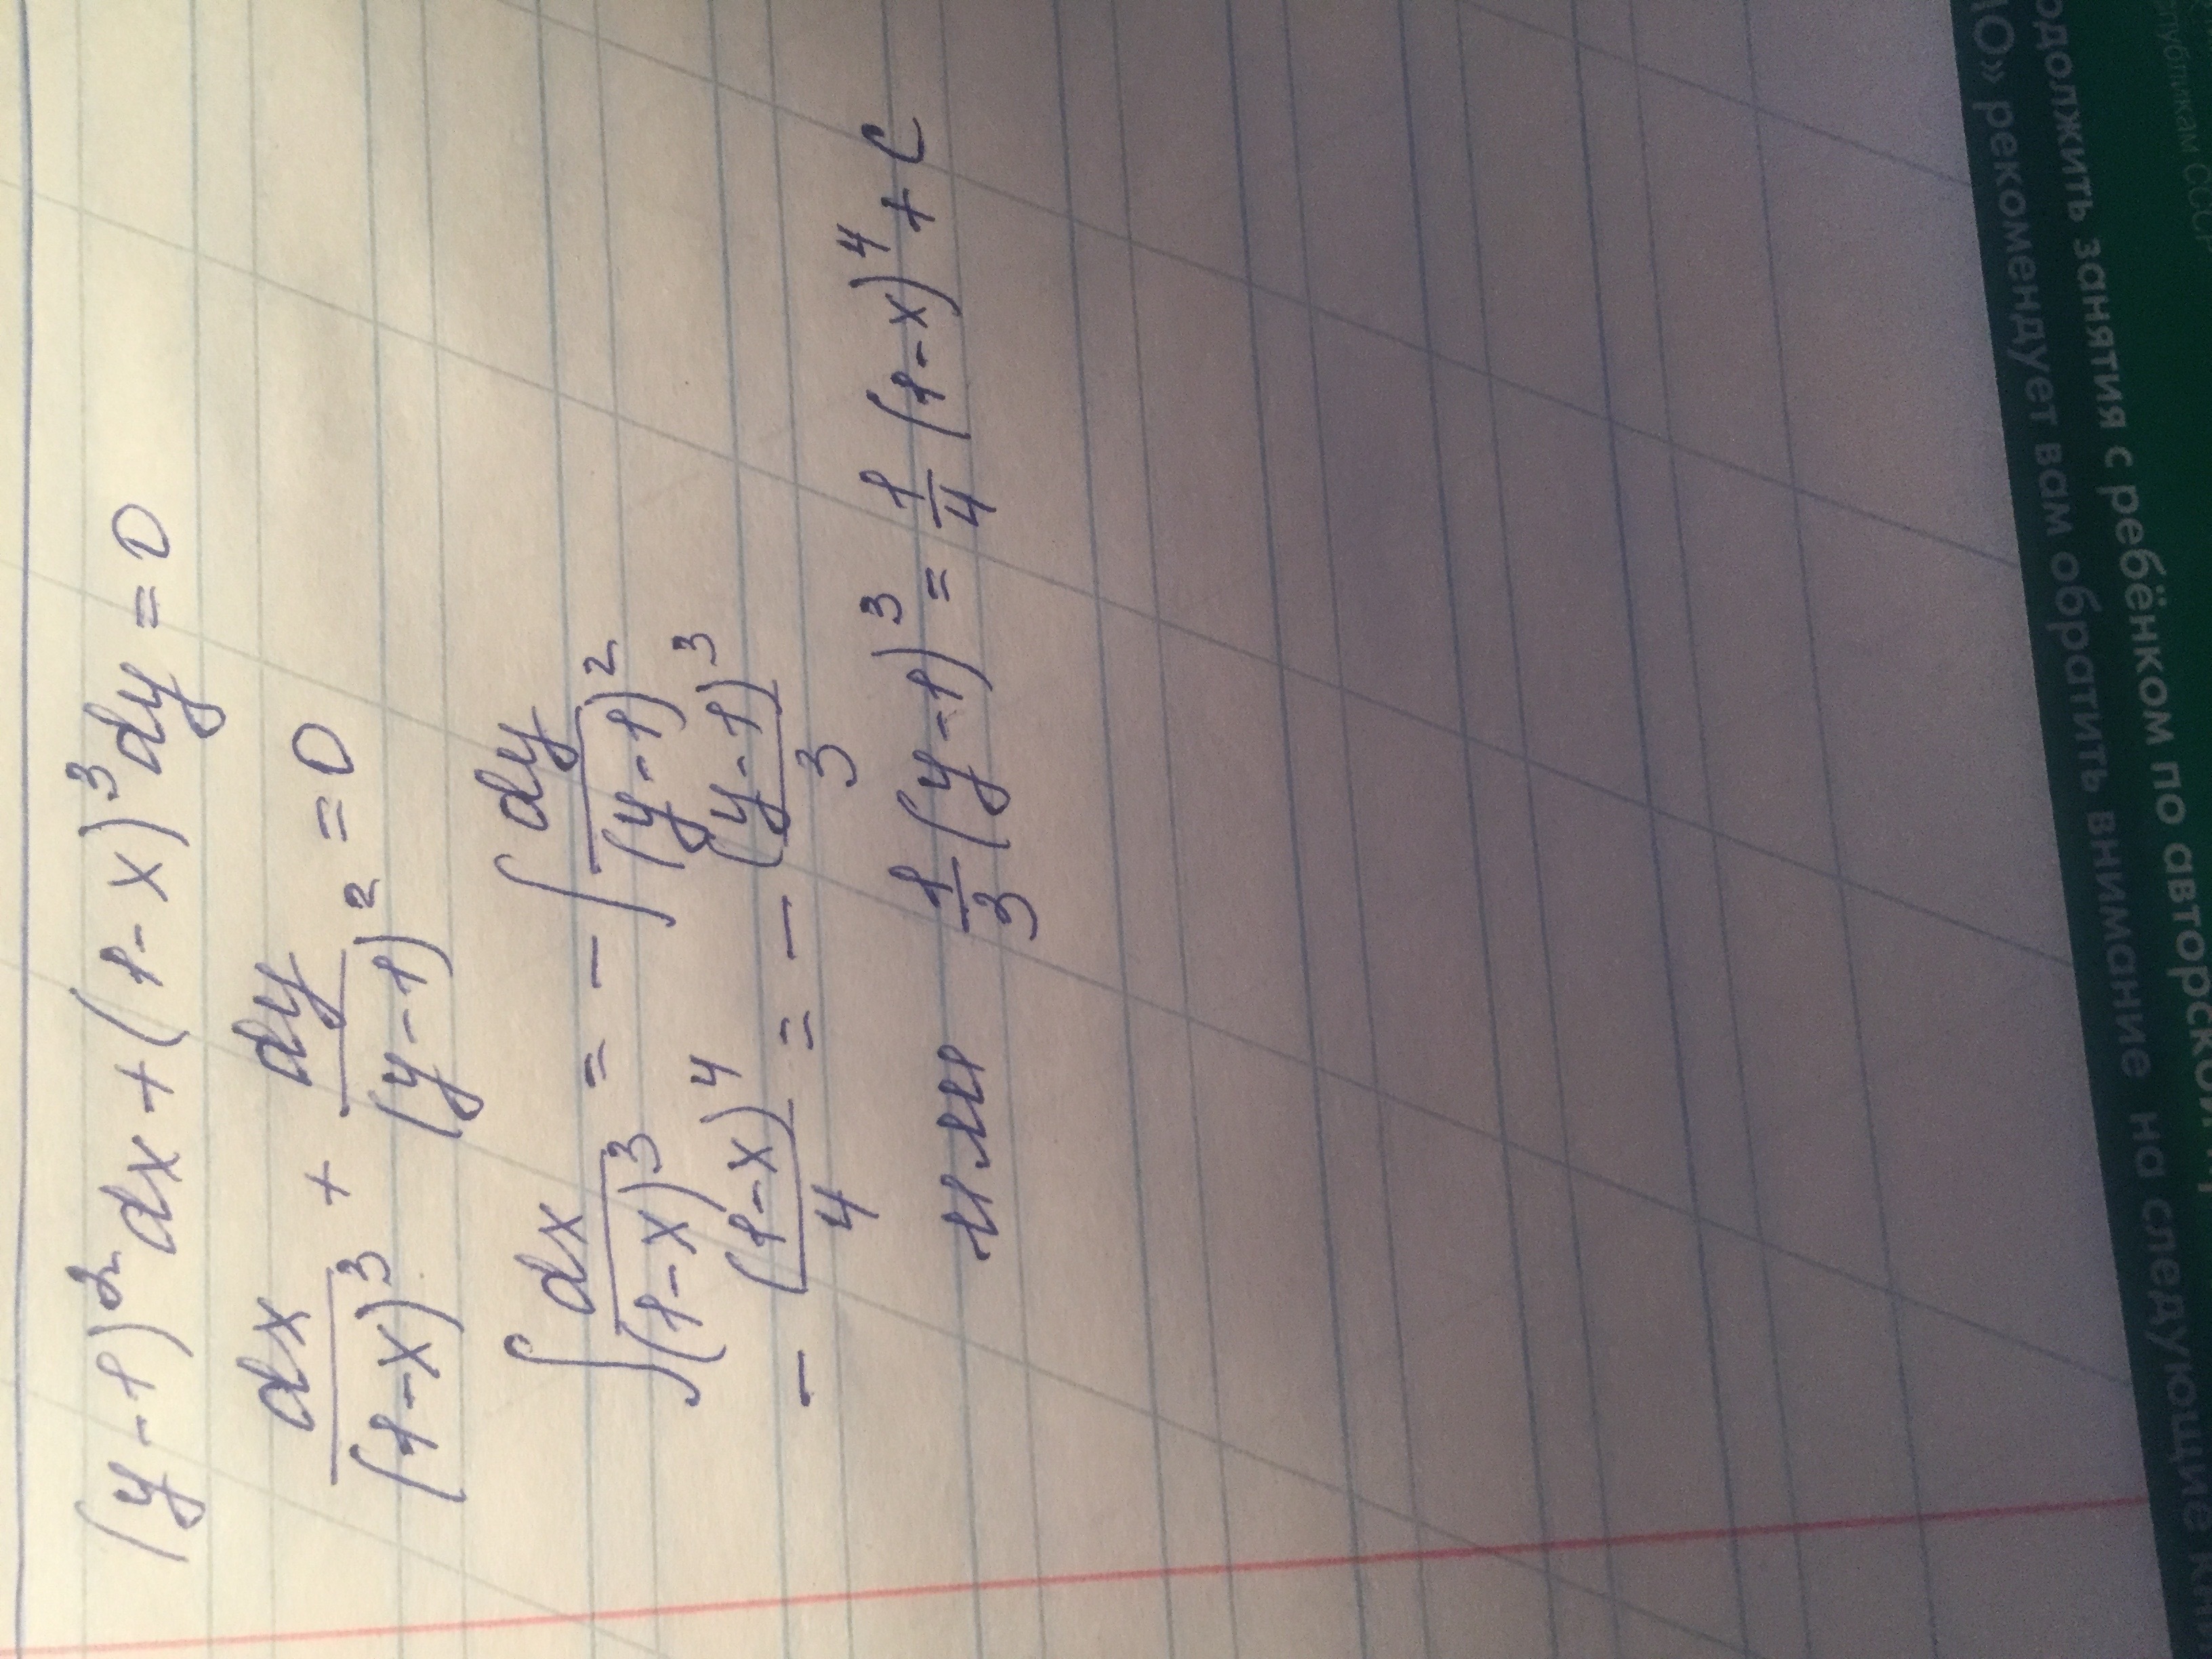 (y-1)² dx + (1-x)³ dy = 0
dx/(1-x)³ + dy/(y-1)² = 0
∫ dx/(1-x)³ = - ∫ dy/(y-1)²
- (1-x)⁴/4 = - (y-1)³/3
или 1/3 (y-1)³ = 1/4 (1-x)⁴ + C
одолжить занятия с ребёнком по авторской
ЛО» рекомендует вам обратить внимание на следующие